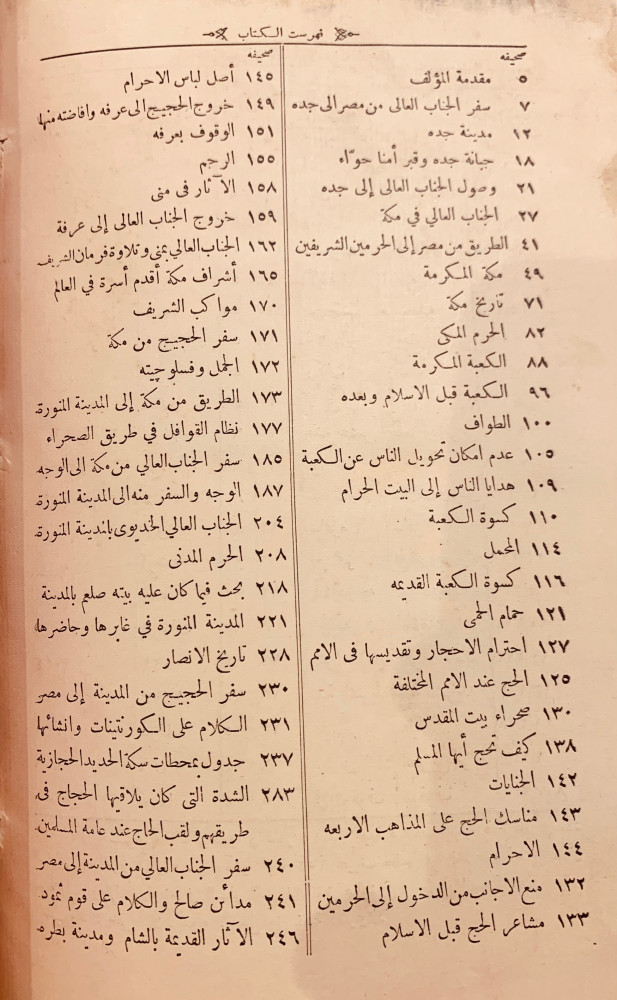 فهرست الكتاب
صحيفه
٥ مقدمة المؤلف
٧ سفر الجناب العالى من مصر الى جده
١٢ مدينة جده
١٨ جبانة جده وقبر أمنا حوّاء
٢١ وصول الجناب العالى إلى جده
٢٧ الجناب العالي في مكة
٤١ الطريق من مصر إلى الحرمين الشريفين
٤٩ مكة المكرمة
٧١ تاريخ مكة
٨٢ الحرم المكى
٨٨ الكعبة المكرمة
٩٦ الكعبة قبل الاسلام وبعده
١٠٠ الطواف
١٠٥ عدم امكان تحويل الناس عن الكعبة
١٠٩ هدايا الناس إلى البيت الحرام
١١٠ كسوة الكعبة
١١٤ المحمل
١١٦ كسوة الكعبة القديمه
١٢١ حمام الحمى
١٢٧ احترام الاحجار وتقديسها فى الامم
١٢٥ الحج عند الامم المختلفة
١٣٠ صحراء بيت المقدس
١٣٨ كيف تحج أيها المسلم
١٤٢ الجنايات
١٤٣ مناسك الحج على المذاهب الاربعه
١٤٤ الاحرام
١٣٢ منع الاجانب من الدخول إلى الحرمين
١٣٣ مشاعر الحج قبل الاسلام
صحيفه
١٤٥ أصل لباس الاحرام
١٤٩ خروج الحجيج الى عرفه وافاضته منها
١٥١ الوقوف بعرفه
١٥٥ الرجم
١٥٨ الآثار فى منى
١٥٩ خروج الجناب العالى إلى عرفة
١٦٢ الجناب العالي بمنى وتلاوة فرمان الشريف
١٦٥ أشراف مكة أقدم أسرة في العالم
١٧٠ مواكب الشريف
١٧١ سفر الحجيج من مكة
١٧٢ الجمل وفسلوجيته
١٧٣ الطريق من مكة إلى المدينة المنورة
١٧٧ نظام القوافل في طريق الصحراء
١٨٥ سفر الجناب العالي من مكة الى الوجه
١٨٧ الوجه والسفر منه الى المدينة المنورة
٢٠٤ الجناب العالي الخديوى بالمدينة المنورة
٢٠٨ الحرم المدنى
٢١٨ بحث فيما كان عليه بيته صلعم بالمدينة
٢٢١ المدينة المنورة في غابرها وحاضرها
٢٢٨ تاريخ الانصار
٢٣٠ سفر الحجيج من المدينة إلى مصر
٢٣١ الكلام على الكورنتينات وانشائها
٢٣٧ جدول بمحطات سكة الحديد الحجازية
٢٨٣ الشدة التى كان يلاقيها الحجاج فى
طريقهم ولقب الحاج عند عامة المسلمين
٢٤٠ سفر الجناب العالي من المدينة إلى مصر
٢٤١ مدائن صالح والكلام على قوم ثمود
٢٤٦ الآثار القديمة بالشام ومدينة بطره